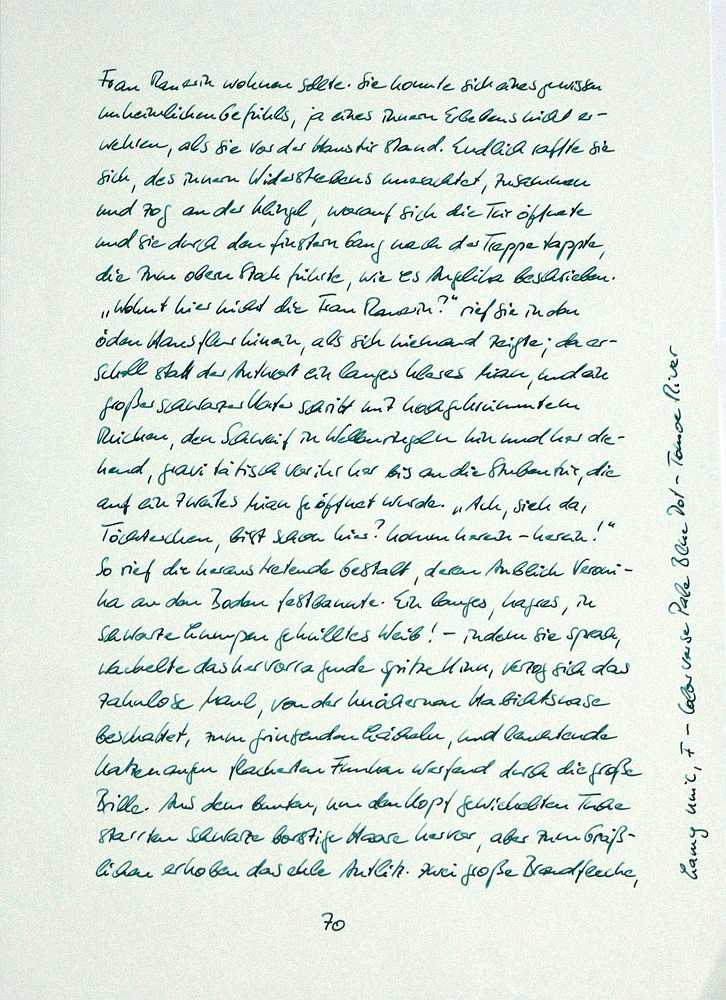 Frau Rauerin wohnen sollte. Sie konnte sich eines gewissen
unheimlichen Gefühls, ja eines innern Erbebens nicht er-
wehren, als sie vor der Haustür stand. Endlich raffte sie
sich, des innern Widerstrebens unerachtet, zusammen
und zog an der Klingel, worauf sich die Tür öffnete
und sie durch den finstern Gang nach der Treppe tappte,
die zum obern Stock führte, wie es Angelika beschrieben.
„Wohnt hier nicht die Frau Rauerin?“ rief sie in den
öden Hausflur hinein, als sich niemand zeigte; da er-
scholl statt der Antwort ein langes klares Miau, und ein
großer schwarzer Kater schritt mit hochgekrümmtem
Rücken, den Schweif in Wellenringeln hin und her dre-
hend, gravitätisch vor ihr her bis an die Stubentür, die
auf ein zweites Miau geöffnet wurde. „Ach, sieh da,
Töchterchen, bist schon hier? komm herein – herein!“
So rief die heraustretende Gestalt, deren Anblick Veroni-
ka an den Boden festbannte. Ein langes, hagres, in
schwarze Lumpen gehülltes Weib! – indem sie sprach,
wackelte das hervorragende spitze Kinn, verzog sich das
zahnlose Maul, von der knöchernen Habichtsnase
beschattet, zum grinsenden Lächeln, und leuchtende
Katzenaugen flackerten Funken werfend durch die große
Brille. Aus dem bunten, um den Kopf gewickelten Tuche
starrten schwarze borstige Haare hervor, aber zum Gräß-
lichen erhoben das ekle Antlitz zwei große Brandflecke,
70
Lamy Unic, F – Colorverse Pale Blue Dot – Tomoe River